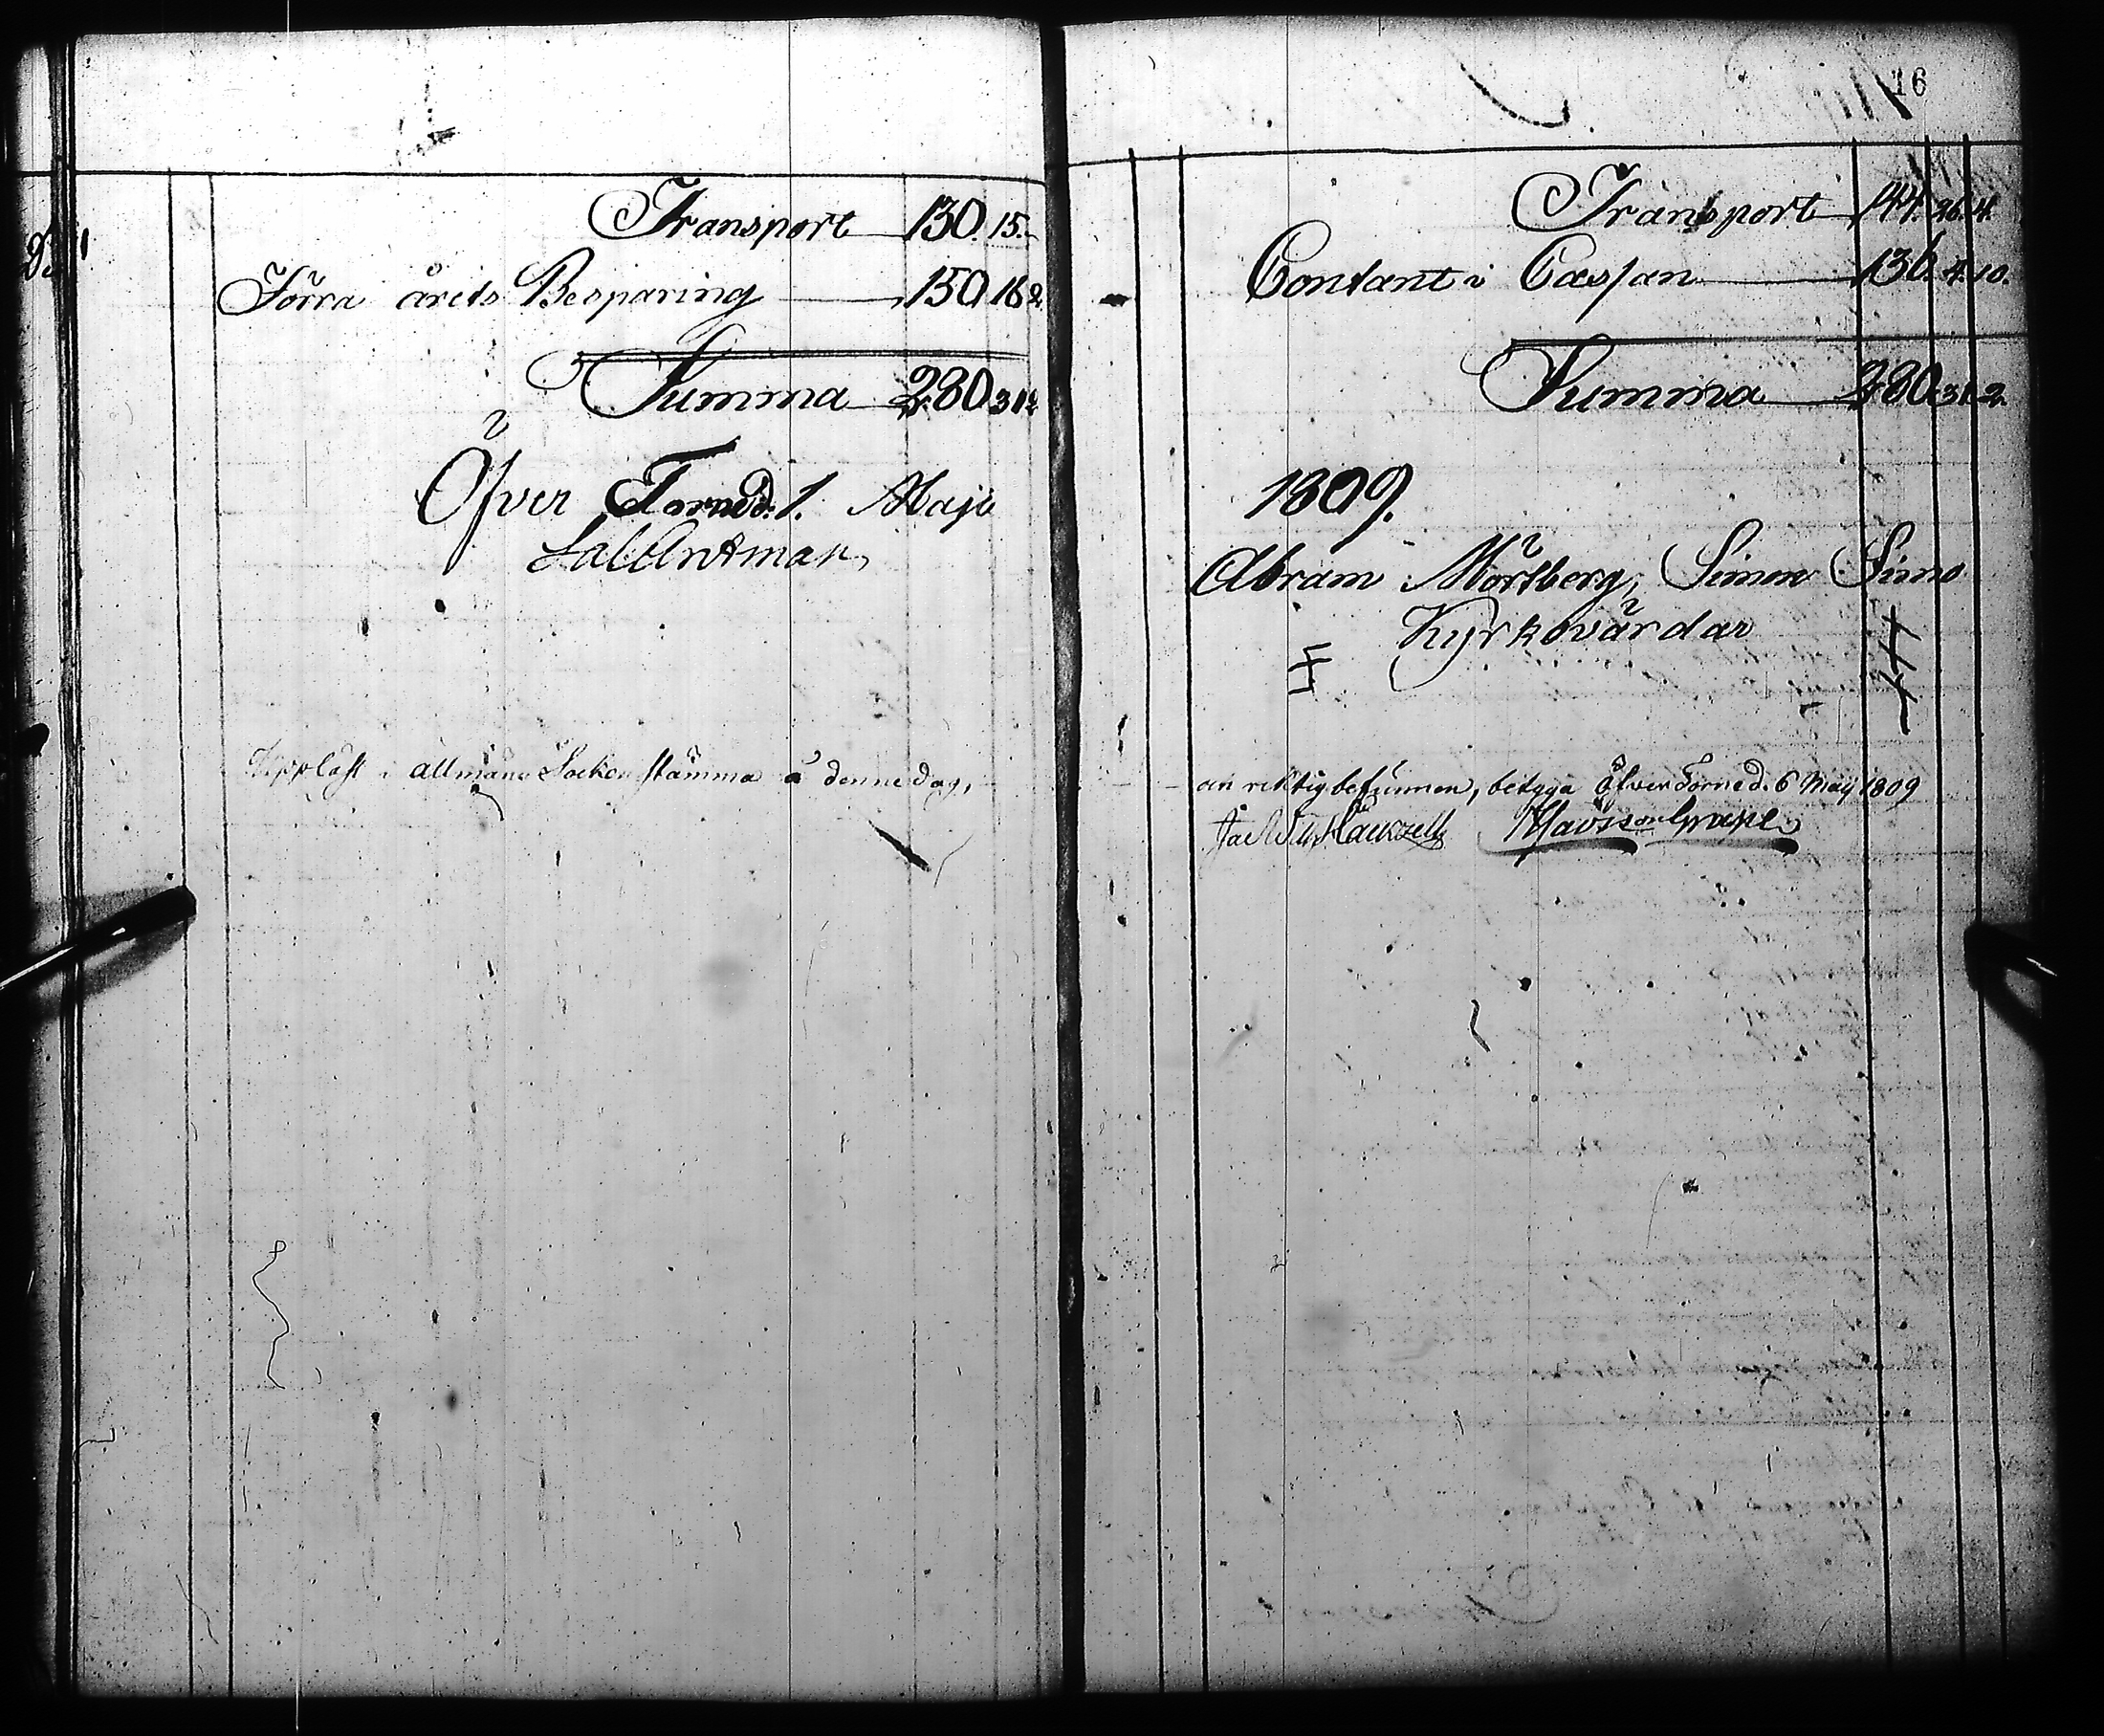 Transport 130. 15.
Förra årets Besparing 150. 16. 2.
Summa 280. 31. 2.
Öfver Torneå d. 1. Maji
Uppläst i allmän Sockenstämma å denne dag,
16
Transport 144. 26. 4.
Contant i Cassan 136. 4. 10.
Summa 280. 31. 2.
1809.
Abram Mörtberg, Simon Simo
Kyrkovärdar
och riktig befunnen, betyga Öfver Torneå d. 6 Maij 1809
Hackzell Grape